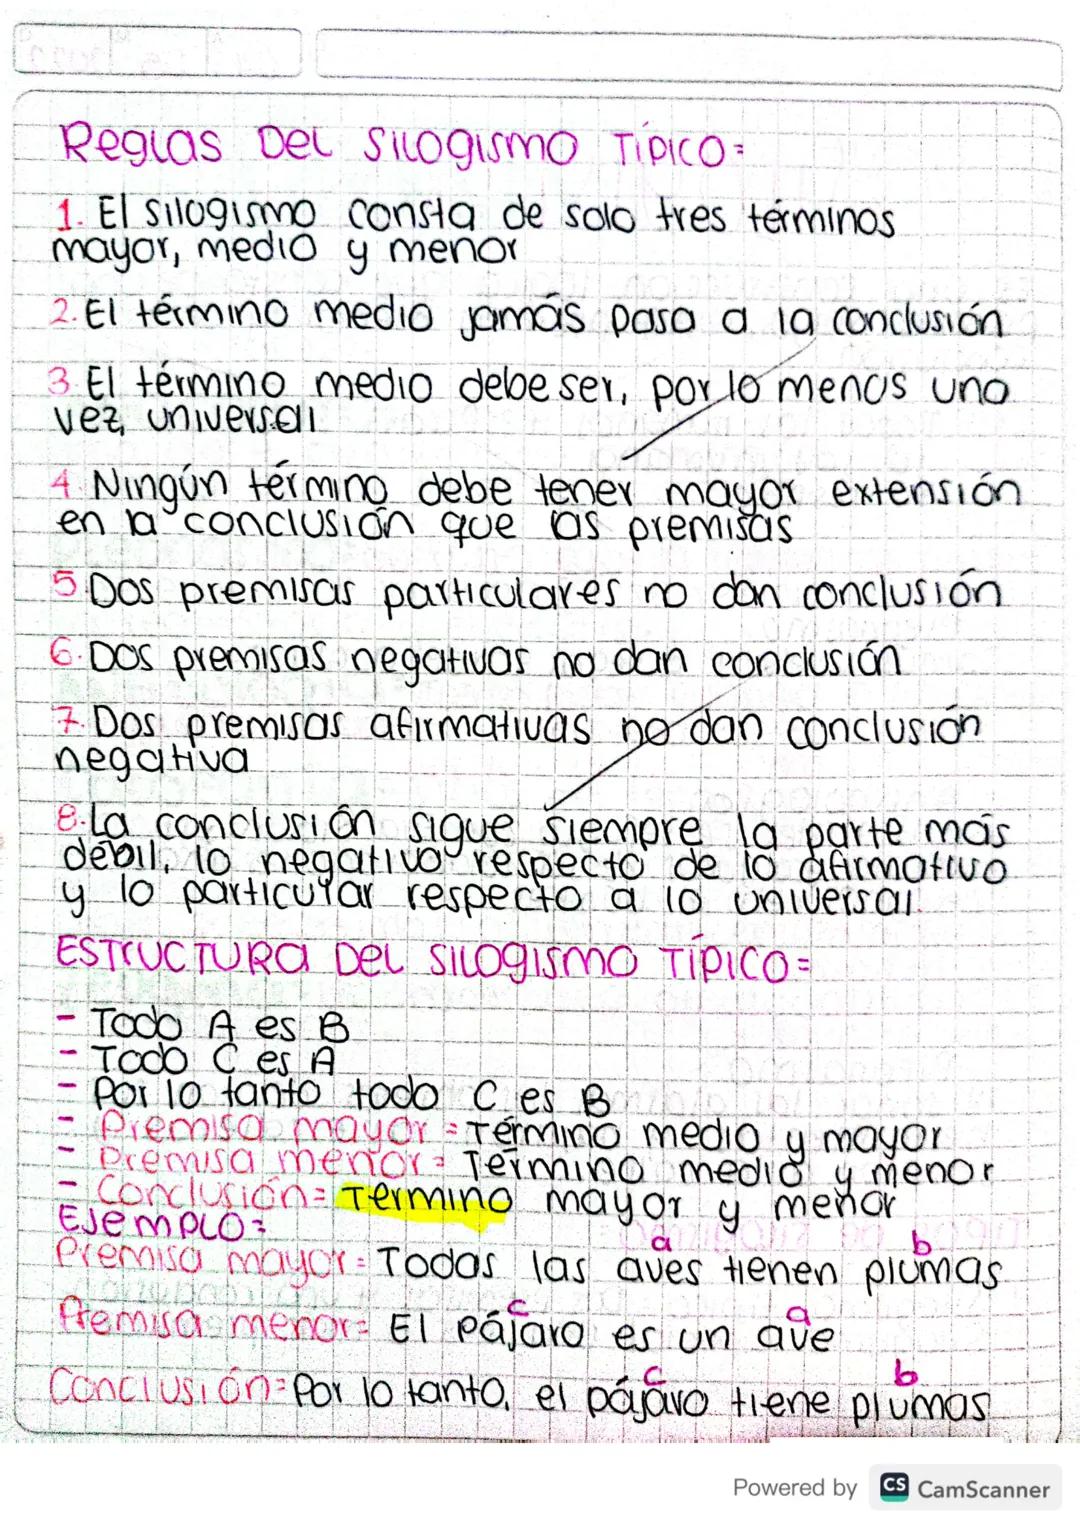 Reglas Del Silogismo Típico=
1. El silogismo consta de solo tres términos
mayor, medio y menor
2. El término medio jamás pasa a la conclusión
3 El término medio debe ser, por lo menos una
vez, universal
4 Ningún término debe tener mayor extensión
en la conclusión que las premisas
5 Dos premisas particulares no dan conclusión
6. Dos premisas negativas no dan conclusión
7. Dos premisas afirmativas no dan conclusión
negativa
8. La conclusión sigue siempre la parte más
débil, lo negativo respecto de lo afirmativo
y lo particular respecto a lo universal.
ESTRUCTURA DEL SILOGISMO TÍPICO=
- Todo A es B
- Todo C es A
- Por lo tanto todo C es B
- Premisa mayor = Término medio y mayor
- Premisa menor = Término medio y menor
- Conclusión = Termino mayor y menor
EJEMPLO=
a b
Premisa mayor = Todas las aves tienen plumas
c a
Premisa menor = El pájaro es un ave
c b
Conclusión = Por lo tanto, el pájaro tiene plumas
Powered by CS CamScanner